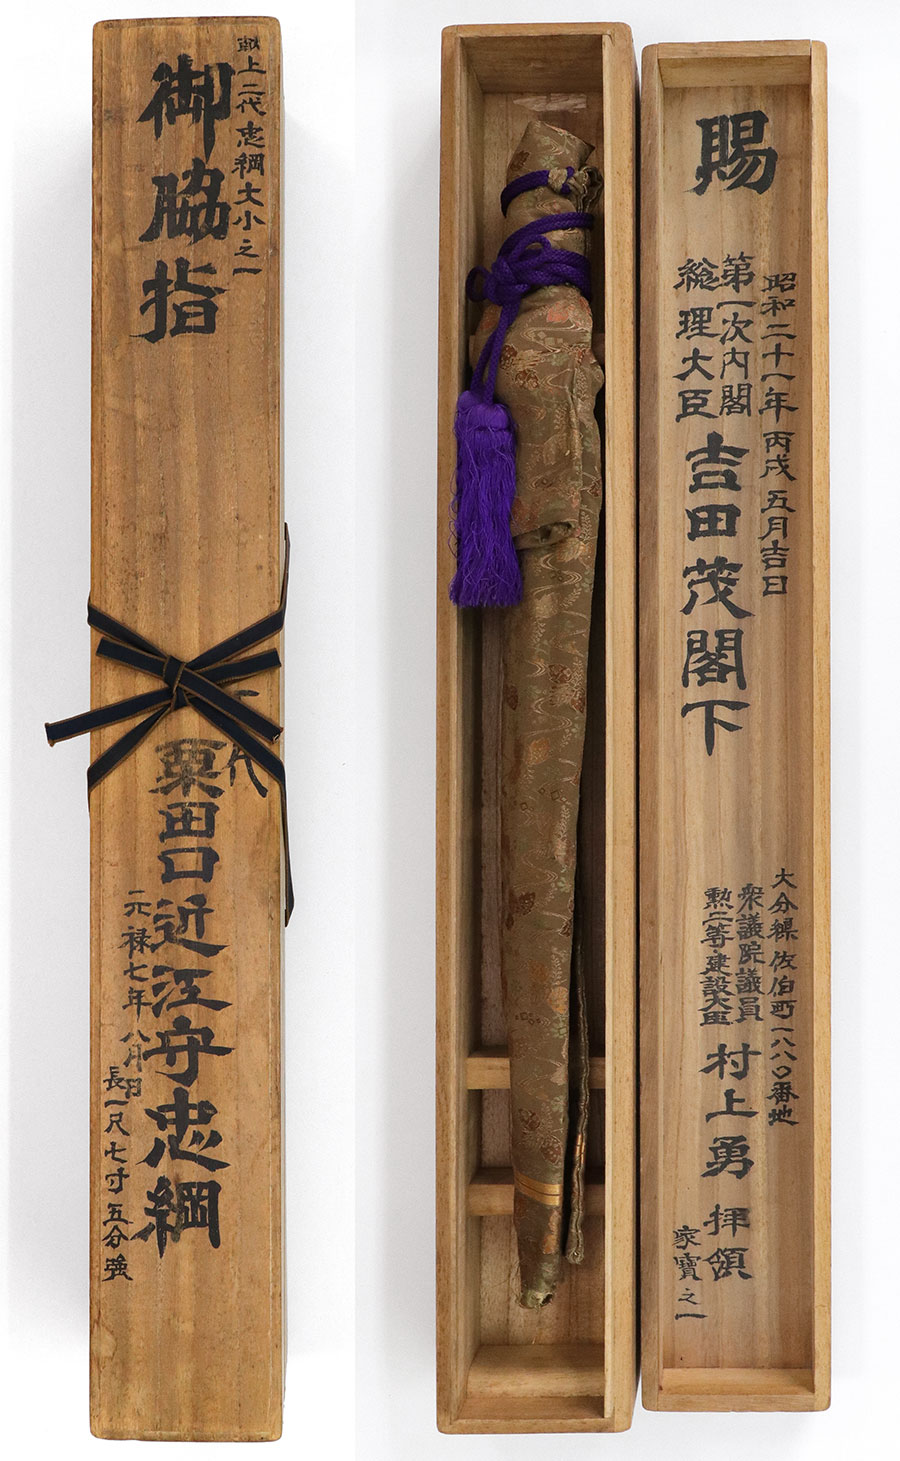 献上二代忠綱大小之一
御脇指
代
粟田口近江守忠綱
元禄七年八月日
長一尺七寸五分強
賜
昭和二十一年丙戌五月吉日
第一次内閣
総理大臣
吉田茂閣下
大分縣佐伯町一八八〇番地
衆議院議員
勲二等建設大臣
村上勇 拝領
家寶之一